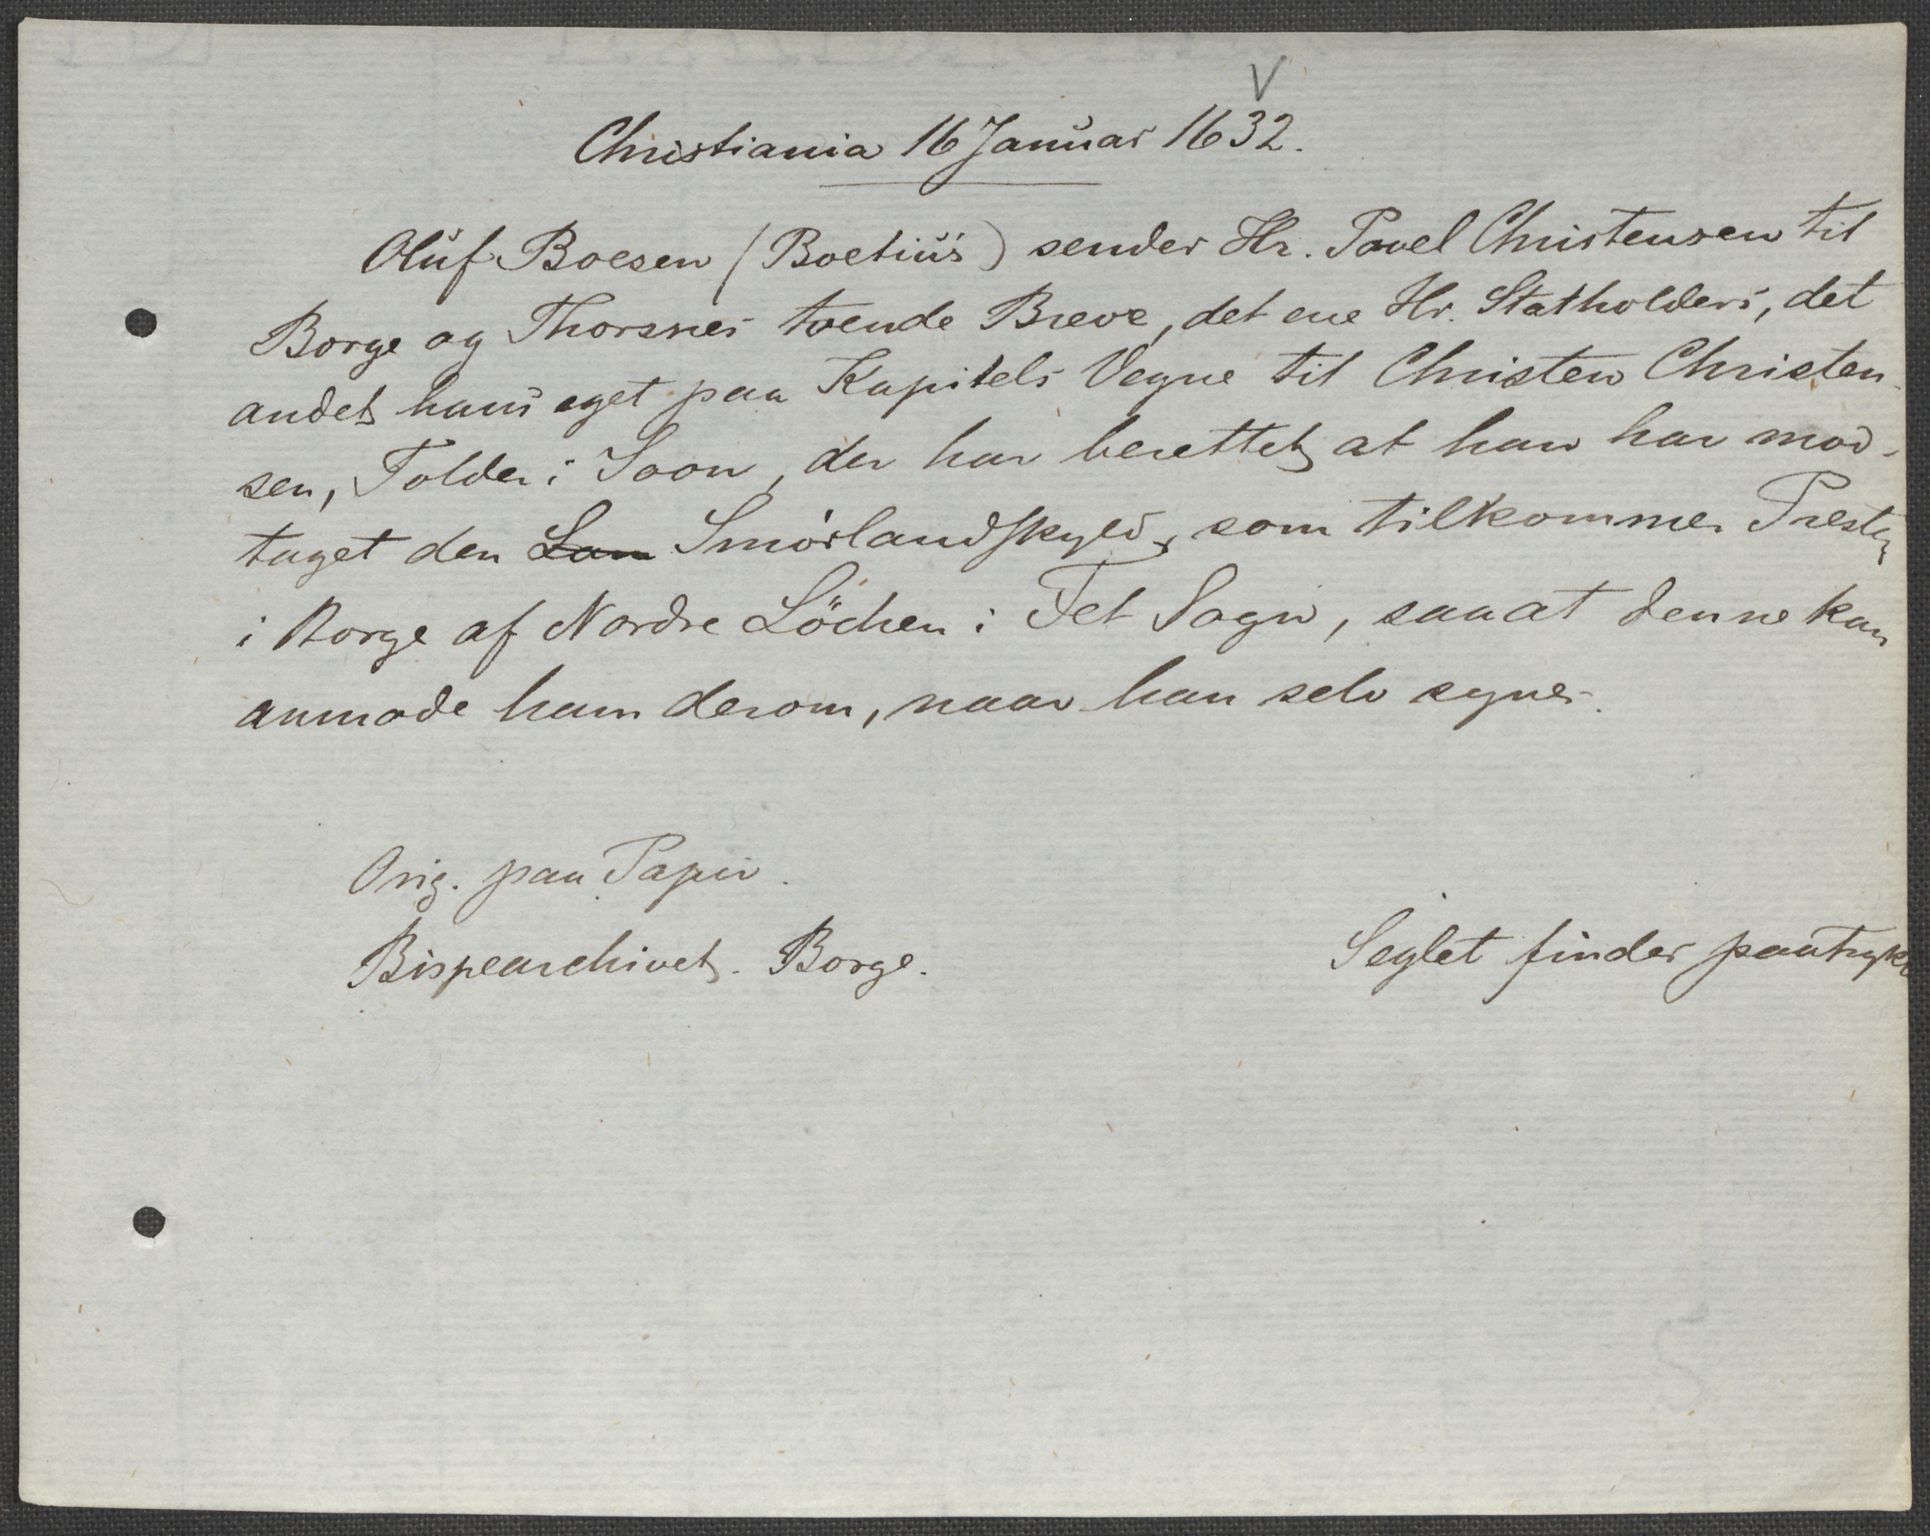 V
Christiania 16 Januar 1632.
Oluf Boesen (Boetius) sender Hr. Povel Christensen til
Borge og Thorsnes tvende Breve, det ene Hr. Statholders, det
andet hans eget paa Kapitels Vegne til Christen Christen-
sen, Tolder i Soon, der har berettet, at han har mod-
taget den Lan Smörlandskyld, som tilkommer Presten
i Borge af Nordre Löchen i Fet Sogn, saaat denne kan
anmode ham derom, naar han selv synes.
Orig. paa Papir.
Bispearchivet. Borge.
Seglet findes paatrykt